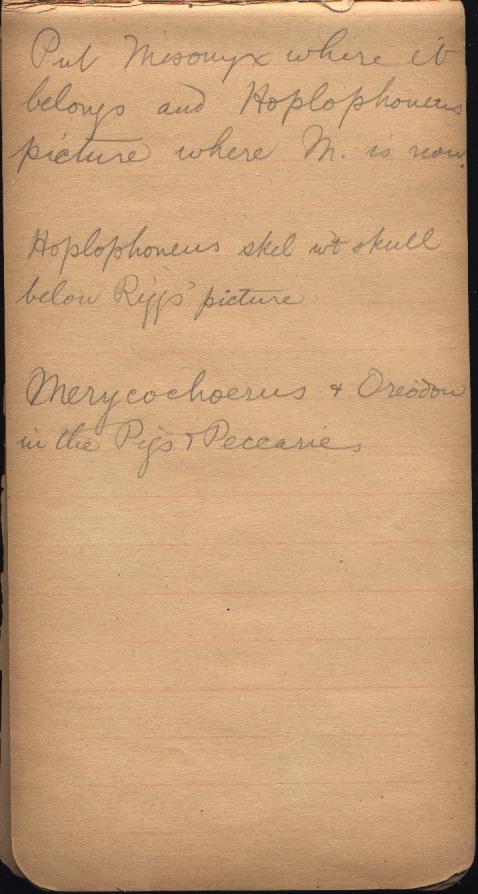 Put Mesonyx where it
belongs and Hoplophoneus
picture where M. is now.
Hoplophoneus skel wt skull
below Riggs' picture
Merycochoerus & Oreodon
in the Pigs & Peccaries